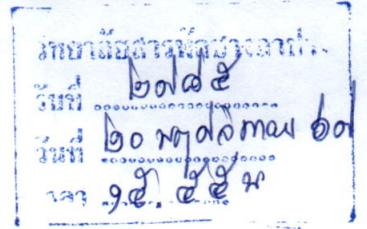 วิทยาลัยสารพัดช่างลำปาง
รับที่ ๒๗๘๕
วันที่ ๒๐ พฤศจิกายน ๖๗
เวลา ๑๕.๕๕ น